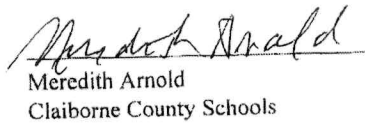 Meredith Arnold
Meredith Arnold
Claiborne County Schools